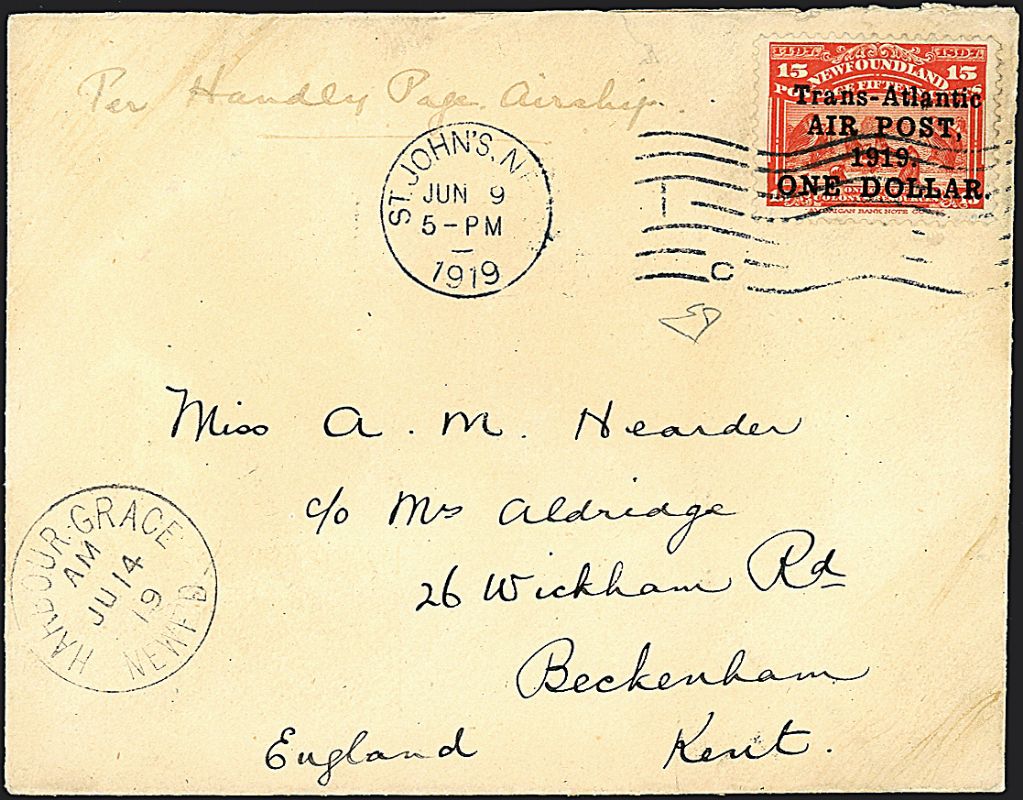 Per Handley Page Airship.
1497 1897
15 NEWFOUNDLAND 15
Trans-Atlantic
AIR POST,
1919.
ONE DOLLAR.
AMERICAN BANK NOTE CO
ST. JOHN'S. N.F.
JUN 9
5-PM
1919
C
Miss A. M. Hearder
c/o Mrs Aldridge
26 Wickham Rd
Beckenham
Kent.
England
HARBOUR-GRACE
AM
JU 14
19
NEWF'D